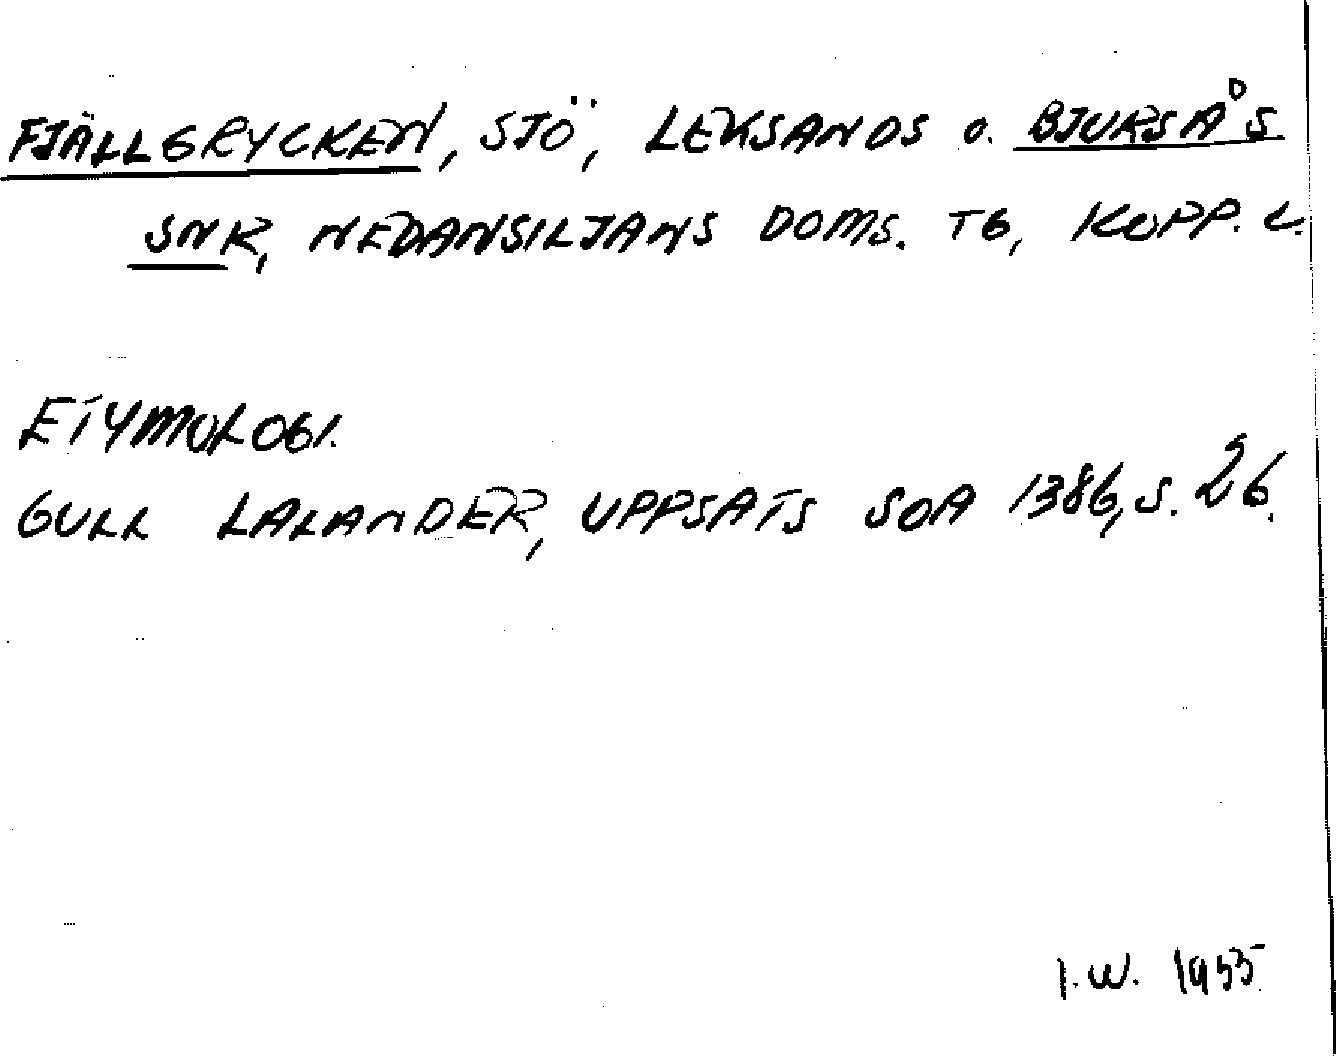 FJÄLLGRYCKEN, SJÖ, LEKSANDS O. BJURSÅS
SNR, NEDANSILJANS DOMS. TG, KOPP. L.
ETYMOLOGI.
GULL LALANDER, UPPSATS SOA 1386, S. 26.
I.W. 1955